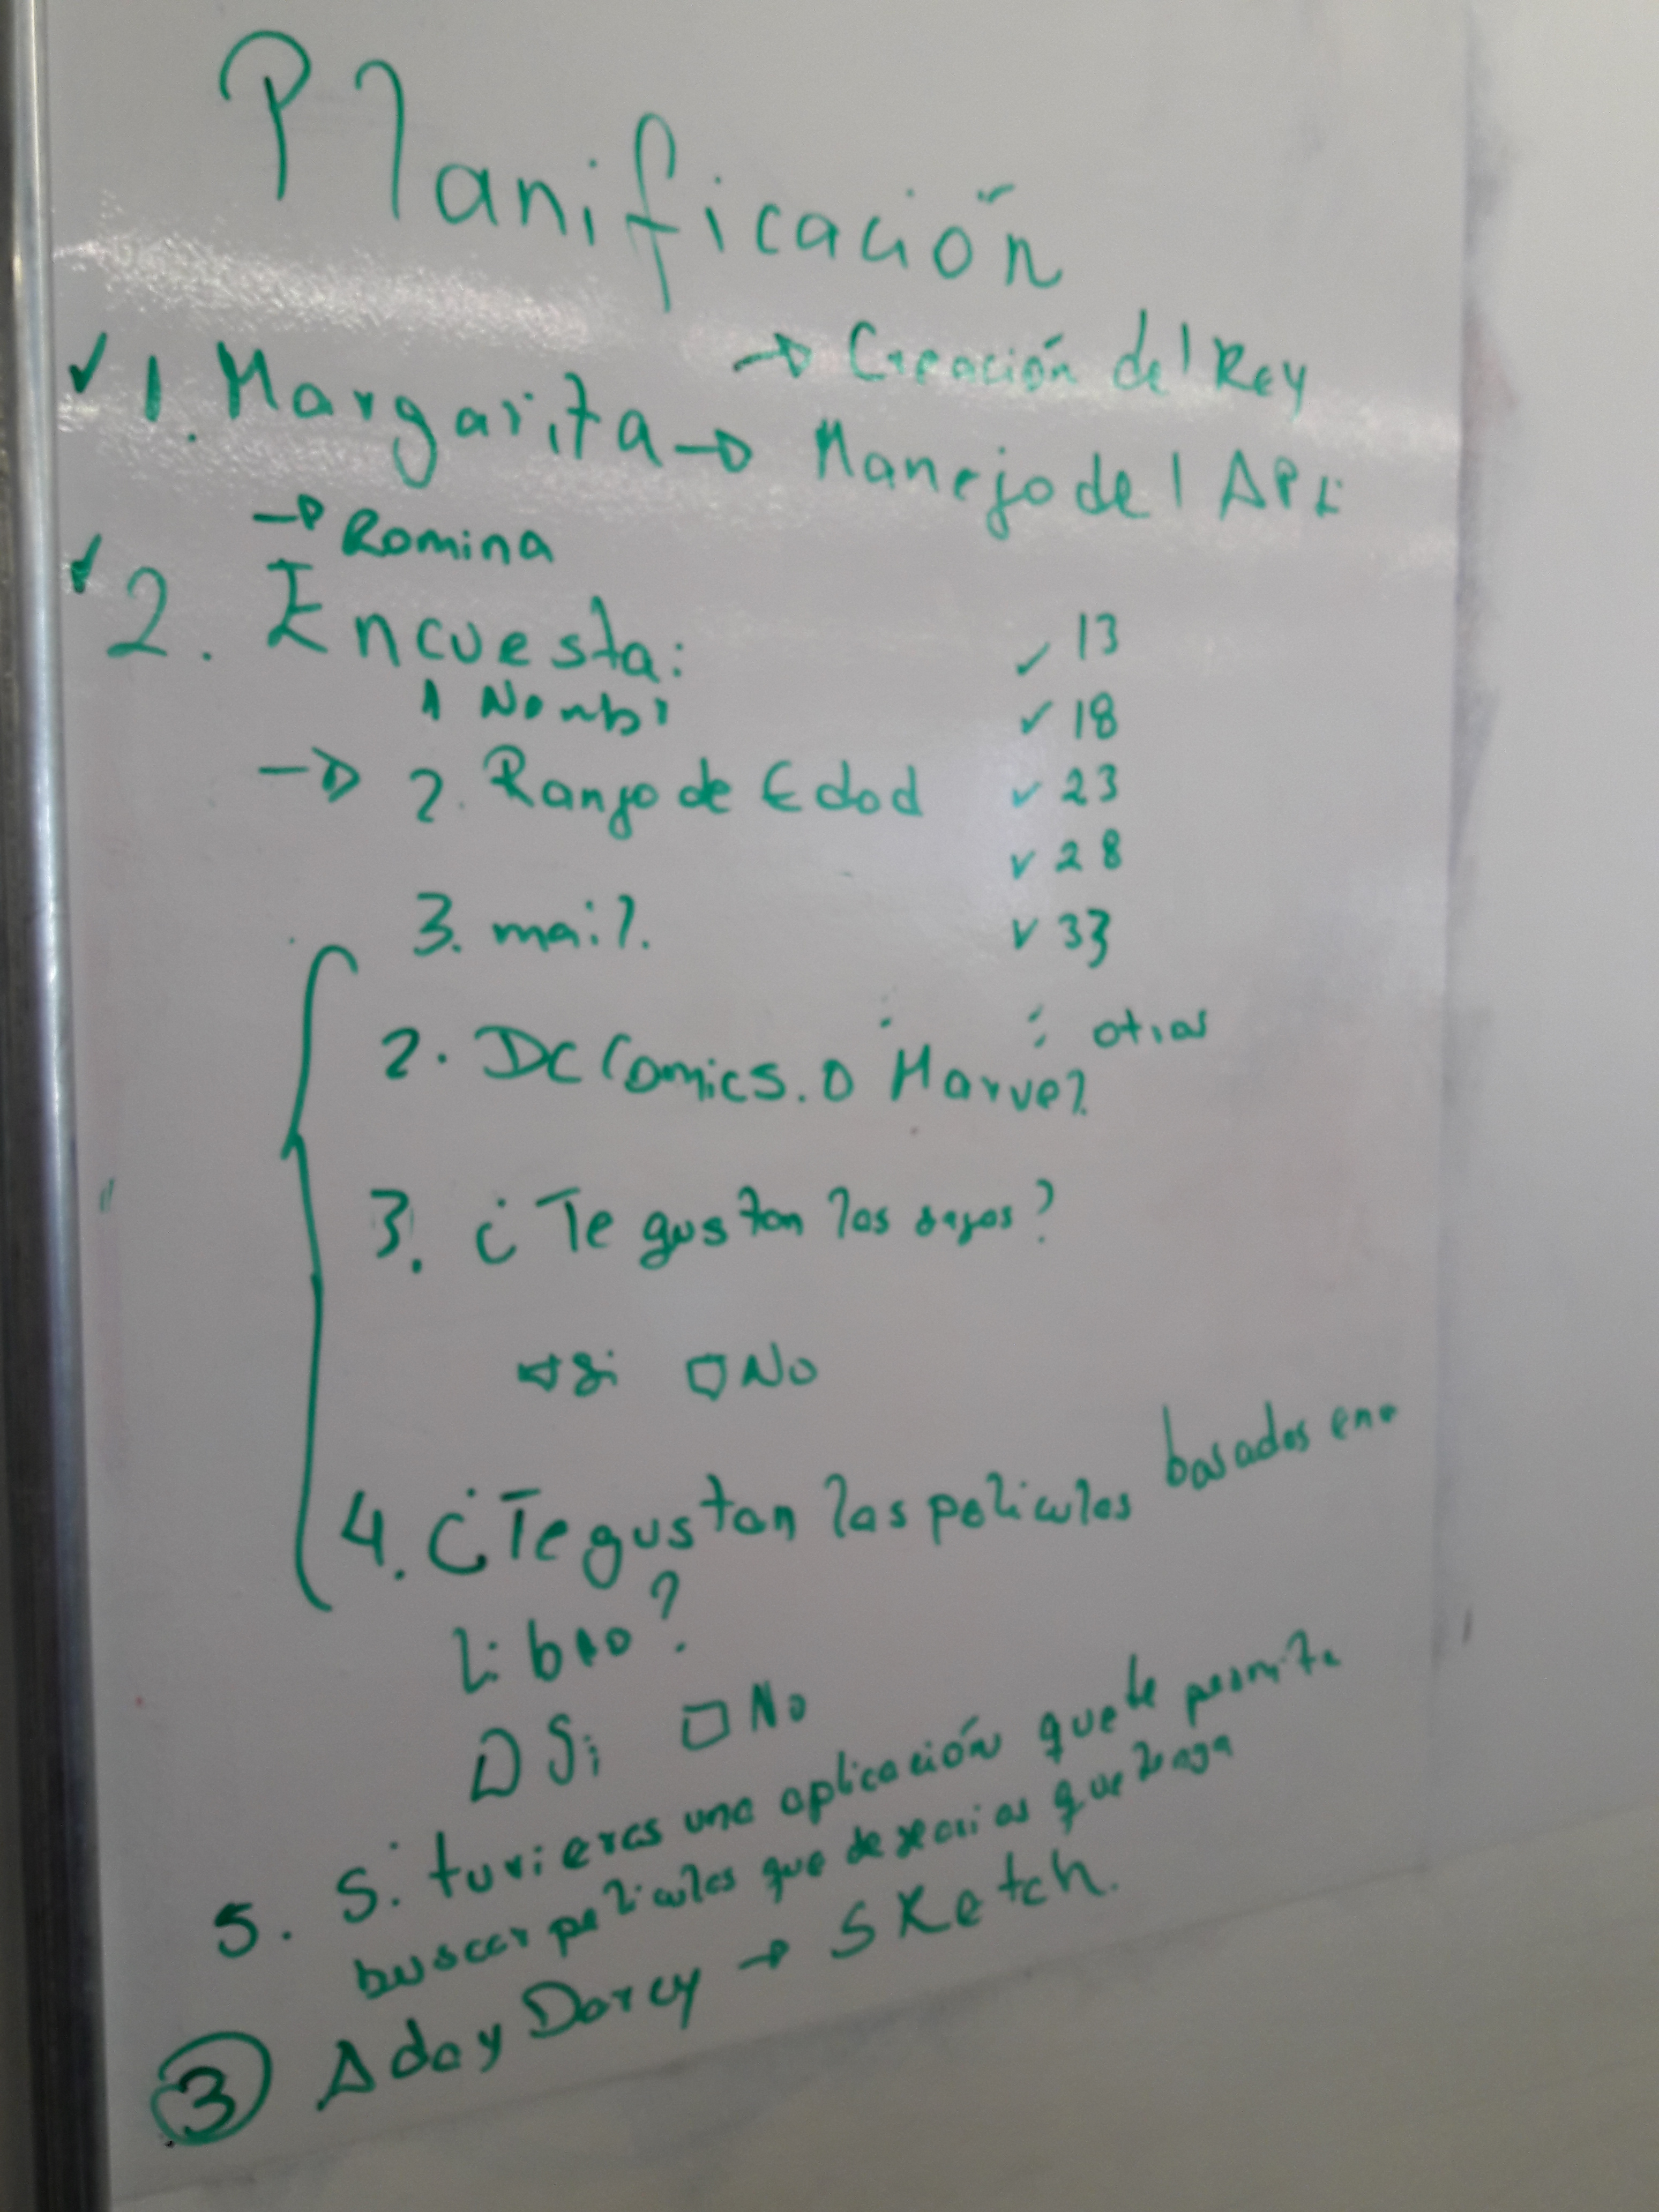 Planificación
→ Creación del Rey
✓ 1. Margarita → Manejo del API
→ Romina
✓ 2. Encuesta:
1 Nombr
✓ 13
✓ 18
→ 2. Rango de Edad ✓ 23
✓ 28
3. mail. ✓ 33
2. DC Comics. o Marvel otras
3. ¿Te gustan las sagas?
Si □ No
4. ¿Te gustan las peliculas basados en
Libro?
□ Si □ No
5. Si tuvieras una aplicación que te permita
buscar peliculas que desearias que tenga
3 Ada y Darcy → Sketch.